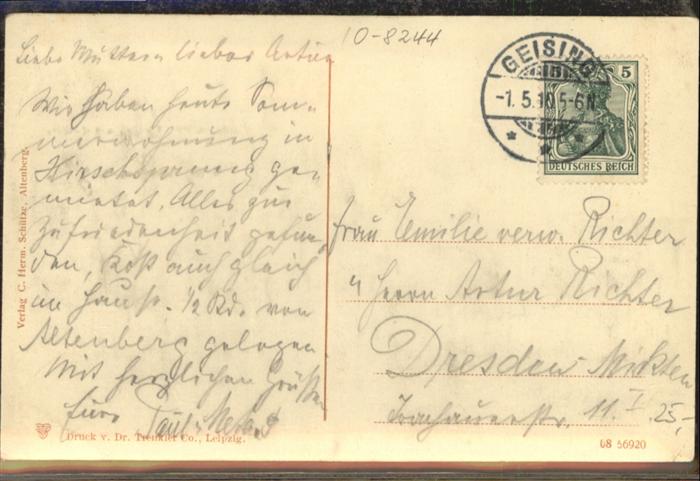 10-8244
Liebe Mutter u. lieber Artur
Wir haben heute Som-
merwohnung in
Hirschsprung ge-
mietet. Alles zur
Zufriedenheit gefun-
den, Kost auch gleich
im Hause. 1/2 Std. von
Altenberg gelegen
Mit herzlichen Grüßen
Eure Paul u.
Verlag C. Herm. Schütze, Altenberg.
Druck v. Dr. Trenkler Co., Leipzig.
GEISING
-1.5.10 5-6N.
5
DEUTSCHES REICH
Frau Emilie verw. Richter
u Herrn Artur Richter
Dresden Mickten
Trachauerstr. 11. I
25,-
08 56920